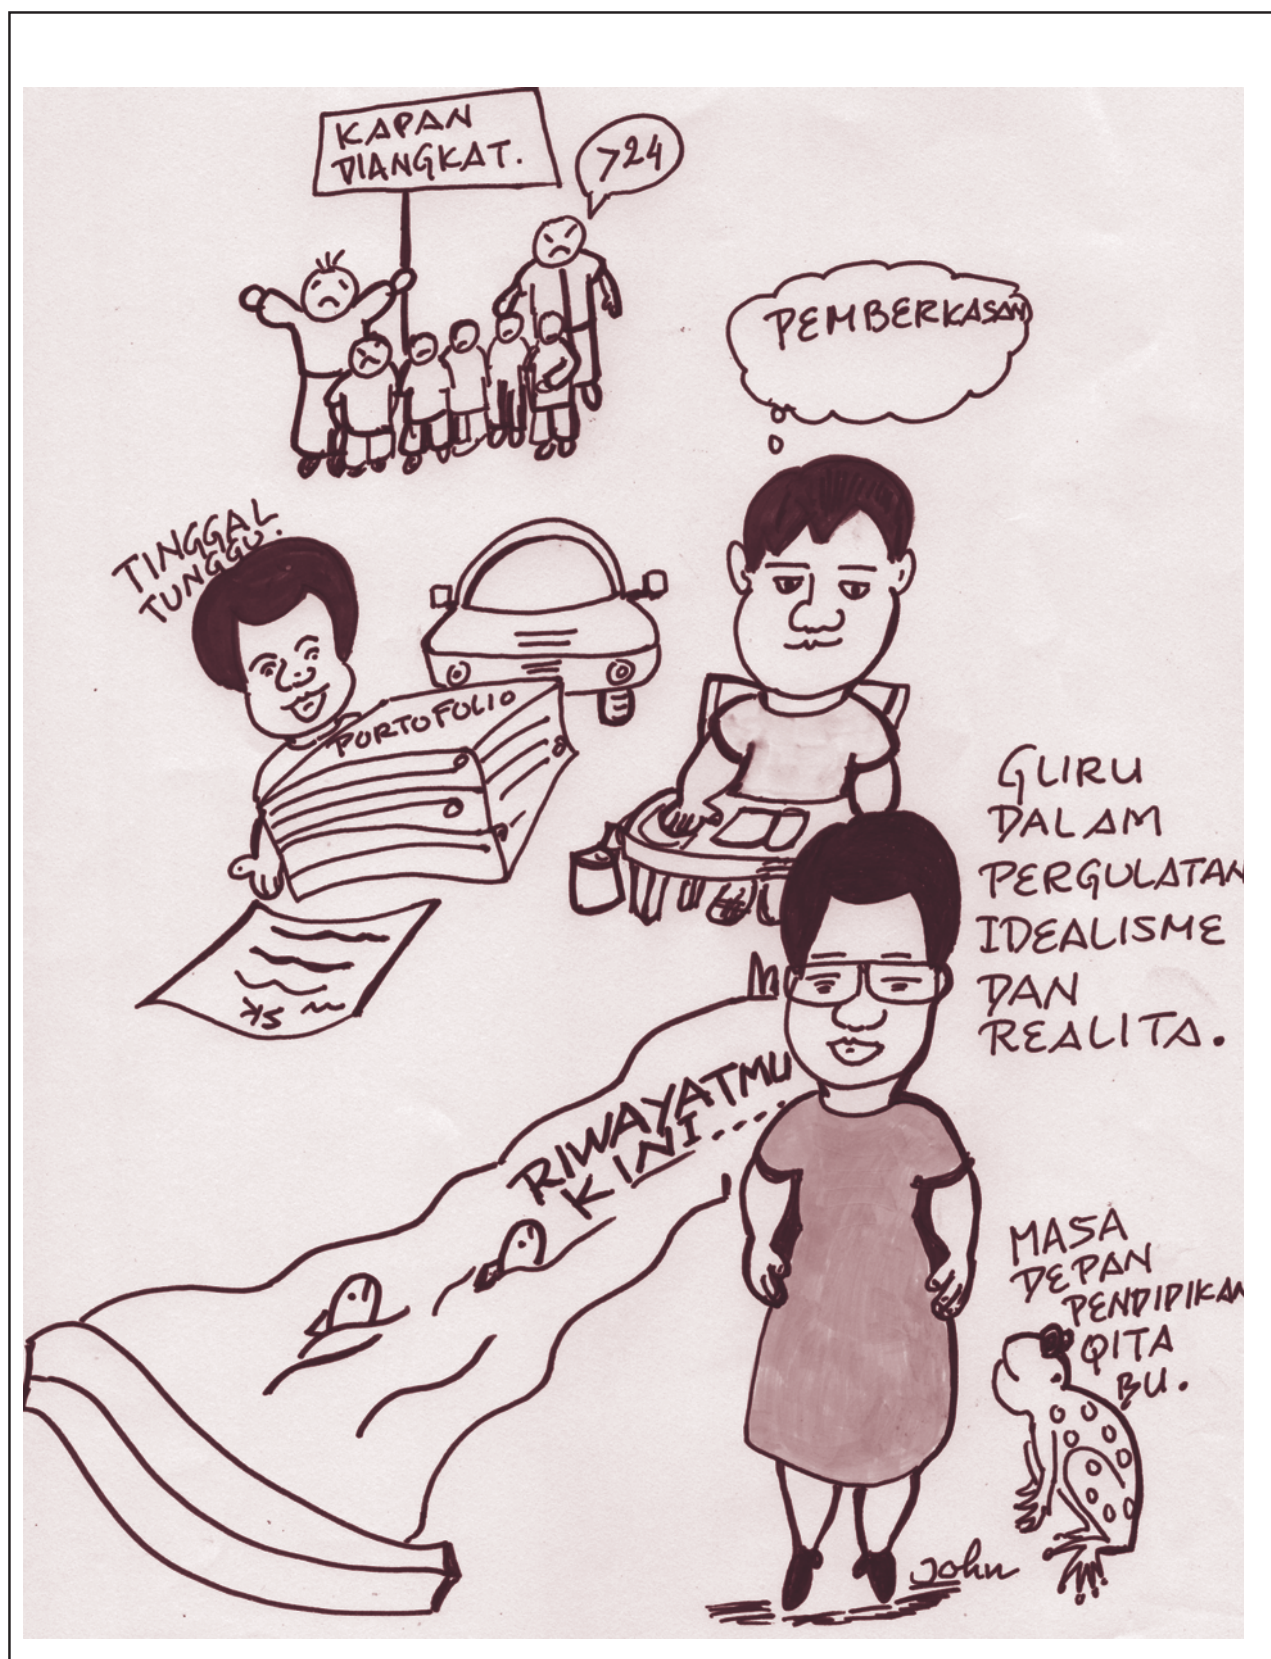 KAPAN
DIANGKAT.
>24
PEMBERKASAN
TINGGAL
TUNGGU.
PORTOFOLIO
SK
GURU
DALAM
PERGULATAN
IDEALISME
DAN
REALITA.
RIWAYATMU
KINI....
MASA
DEPAN
PENDIDIKAN
QITA
BU.
John